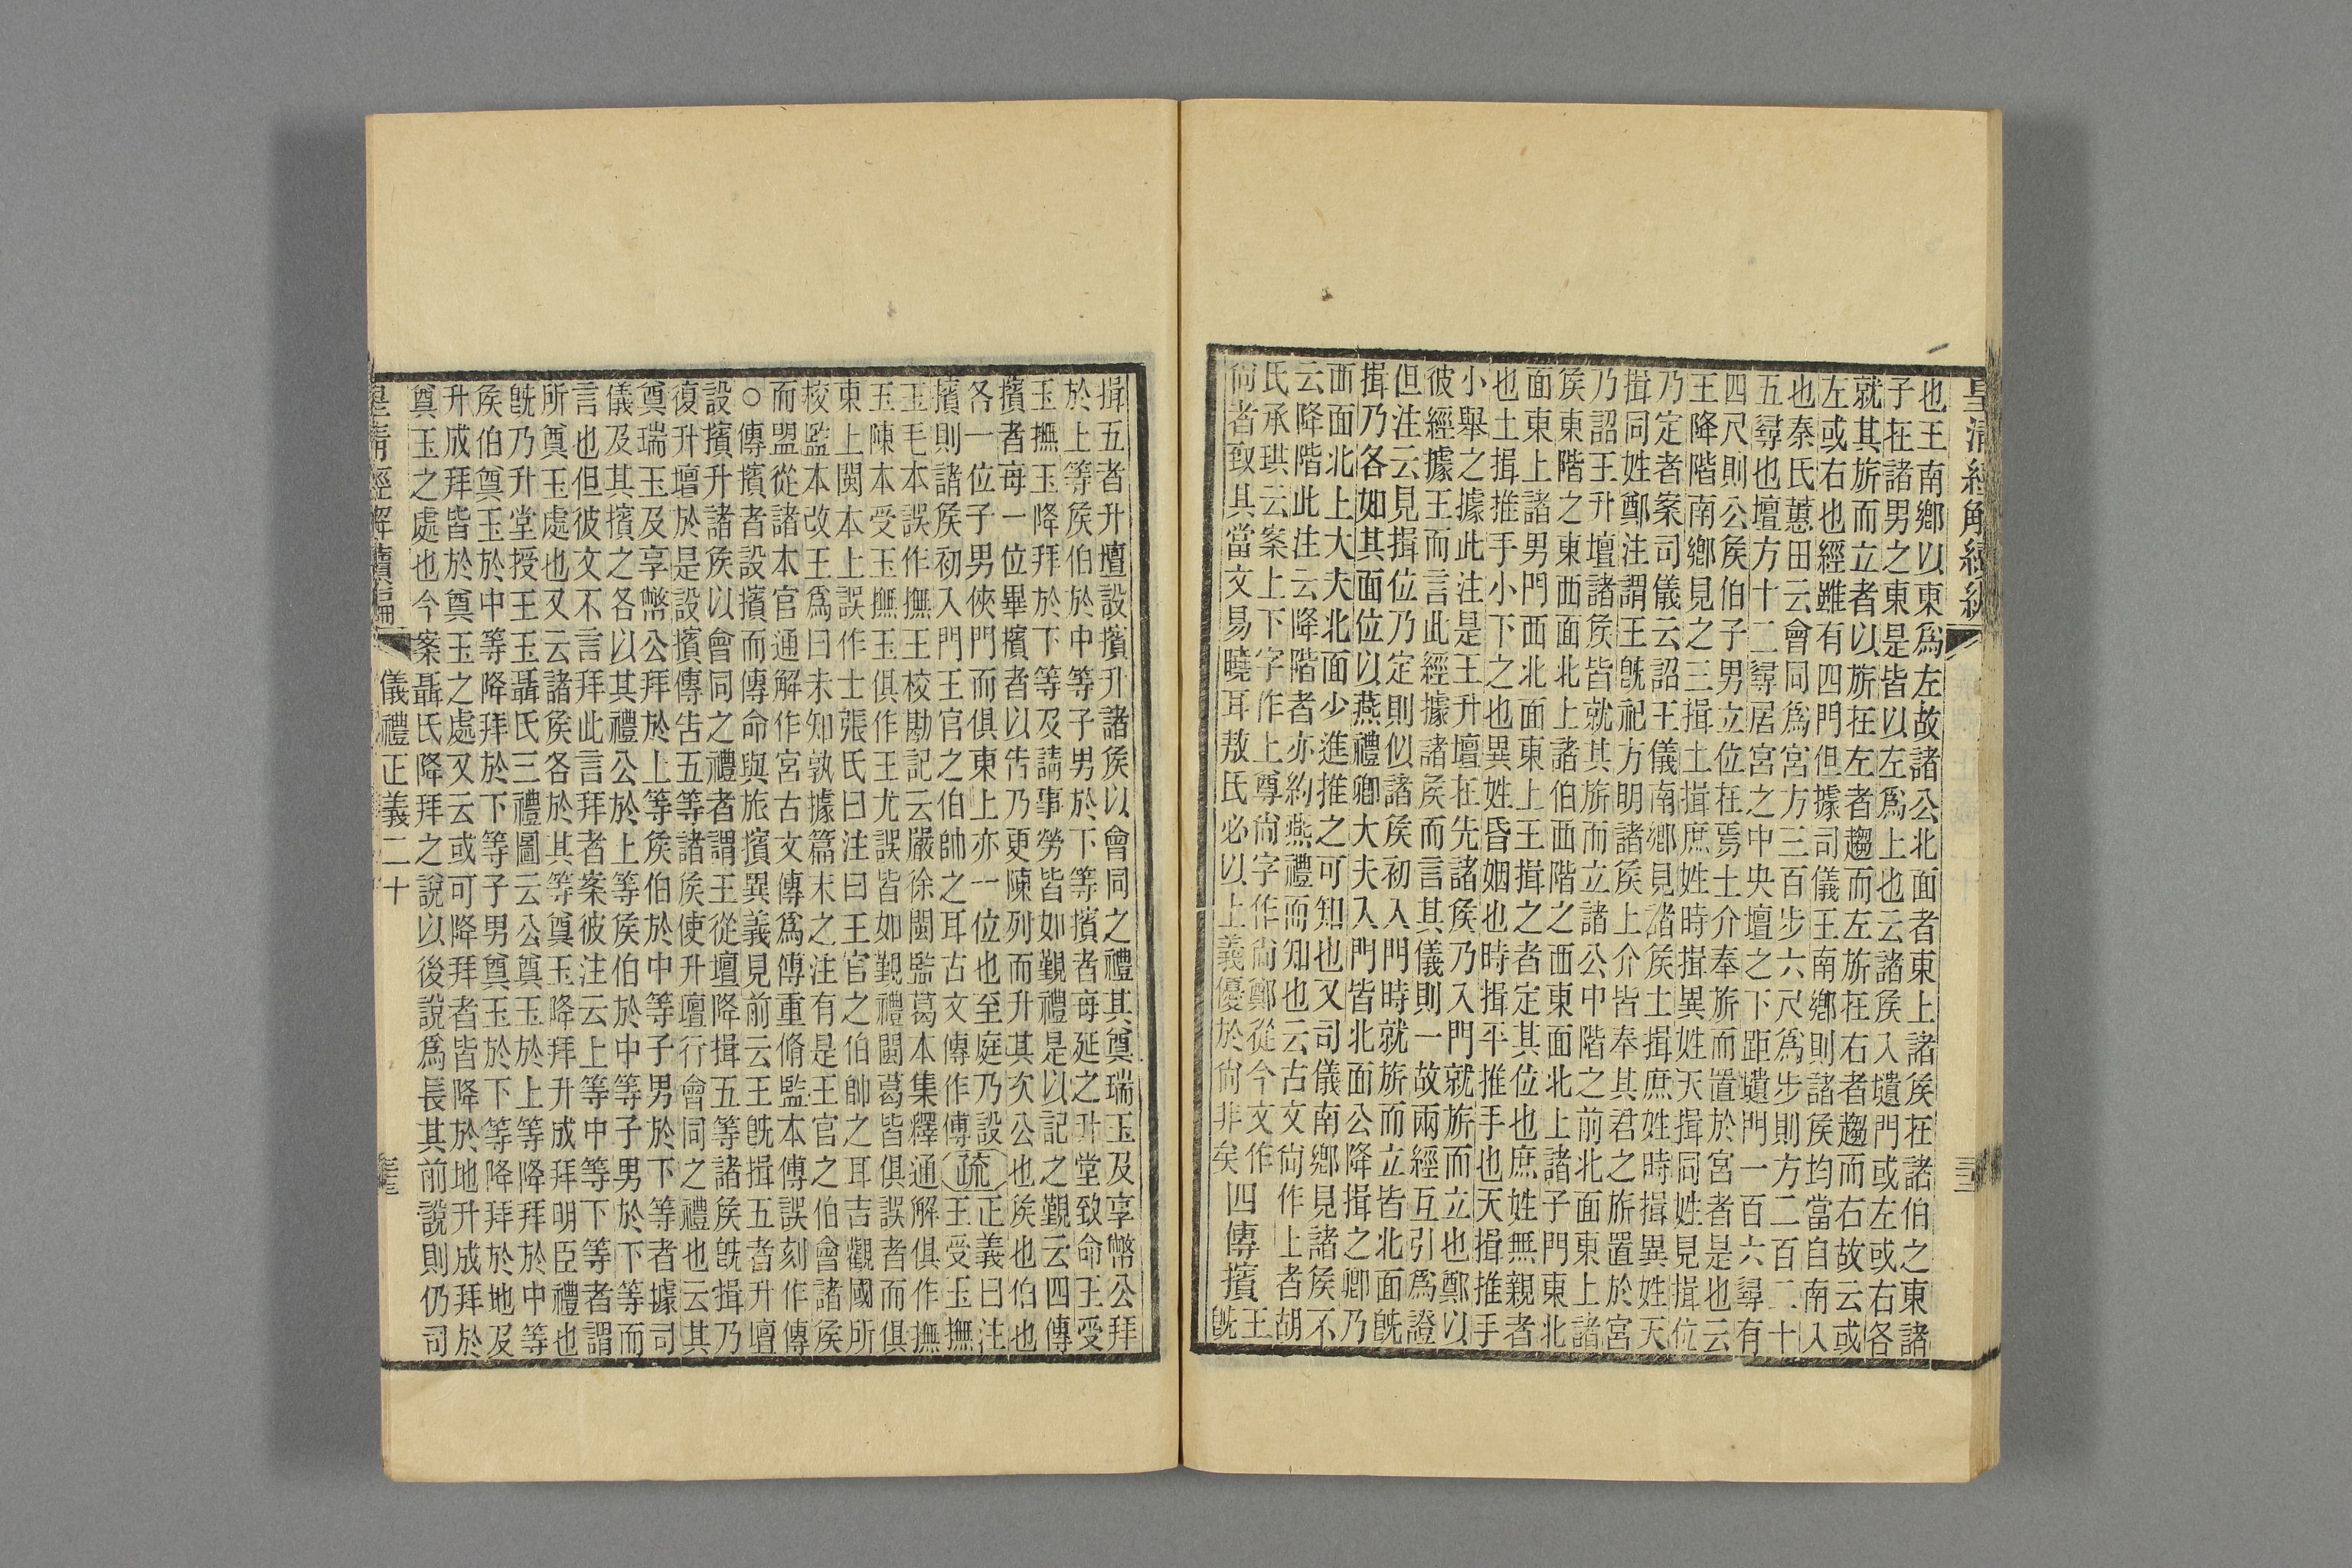 皇清經解續編
三三
也王南鄉以東爲左故諸公北面者東上諸侯在諸伯之東諸
子在諸男之東是皆以左爲上也云諸侯入壝門或左或右各
就其旂而立者以旂在左者趨而左旂在右者趨而右故云或
左或右也經雖有四門但據司儀王南鄉則諸侯均當自南入
也秦氏蕙田云會同爲宮方三百步六尺爲步則方二百二十
五尋也壇方十二尋居宮之中央壇之下距壝門一百六尋有
四尺則公侯伯子男立位在焉士介奉旂而置於宮者是也云
王降階南鄉見之三揖土揖庶姓時揖異姓天揖同姓見揖位
乃定者案司儀云詔王儀南鄉見諸侯土揖庶姓時揖異姓天
揖同姓鄭注謂王旣祀方明諸侯上介皆奉其君之旂置於宮
乃詔王升壇諸侯皆就其旂而立諸公中階之前北面東上諸
侯東階之東西面北上諸伯西階之西東面北上諸子門東北
面東上諸男門西北面東上王揖之者定其位也庶姓無親者
也土揖推手小下之也異姓昏姻也時揖平推手也天揖推手
小舉之據此注是王升壇在先諸侯乃入門就旂而立也鄭以
彼經據王而言此經據諸侯而言其儀則一故兩經互引爲證
但注云見揖位乃定則似諸侯初入門時就旂而立皆北面旣
揖乃各如其面位以燕禮卿大夫入門皆北面公降揖之卿乃
西面北上大夫北面少進推之可知也又司儀南鄉見諸侯不
云降階此注云降階者亦約燕禮而知也云古文尙作上者胡
氏承珙云案上下字作上尊尙字作尙鄭從今文作
尙者致其當文易曉耳敖氏必以上義優於尙非矣
四傳擯
王
旣
揖五者升壇設擯升諸侯以會同之禮其奠瑞玉及享幣公拜
於上等侯伯於中等子男於下等擯者每延之升堂致命王受
玉撫玉降拜於下等及請事勞皆如覲禮是以記之覲云四傳
擯者每一位畢擯者以告乃更陳列而升其次公也侯也伯也
各一位子男俠門而俱東上亦一位也至庭乃設
擯則諸侯初入門王官之伯帥之耳古文傳作傅
疏
正義曰注
王受玉撫
玉毛本誤作撫王校勘記云嚴徐閩監葛本集釋通解俱作撫
玉陳本受玉撫玉俱作王尤誤皆如覲禮閩葛皆俱誤者而俱
東上閩本上誤作士張氏曰注曰王官之伯帥之耳吉觀國所
校監本改王爲曰未知孰據篇末之注有是王官之伯會諸侯
而盟從諸本官通解作宮古文傳爲傅重脩監本傅誤刻作傳
○傳擯者設擯而傳命與旅擯異義見前云王旣揖五者升壇
設擯升諸侯以會同之禮者謂王從壇降揖五等諸侯旣揖乃
復升壇於是設擯傳告五等諸侯使升壇行會同之禮也云其
奠瑞玉及享幣公拜於上等侯伯於中等子男於下等者據司
儀及其擯之各以其禮公於上等侯伯於中等子男於下等而
言也但彼文不言拜此言拜者案彼注云上等中等下等者謂
所奠玉處也又云諸侯各於其等奠玉降拜升成拜明臣禮也
旣乃升堂授王玉聶氏三禮圖云公奠玉於上等降拜於中等
侯伯奠玉於中等降拜於下等子男奠玉於下等降拜於地及
升成拜皆於奠玉之處又云或可降拜者皆降於地升成拜於
奠玉之處也今案聶氏降拜之說以後說爲長其前說則仍司
皇清經解續編
儀禮正義二十
三三